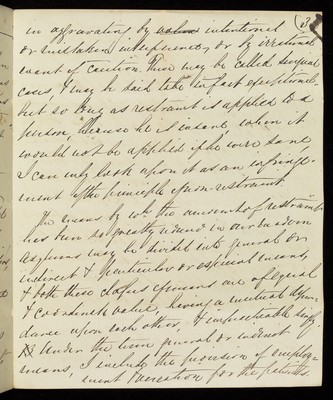 in aggravating by intentional 3
or mistaken interference, or by irrational
want of caution. These may be called surgical
cases, & may be said to be in fact exceptional—
but so long as restraint is applied to a
person, because he is insane, when it
would not be applied if he were sane
I can only look upon it as an infringe-
ment of the principle of non-restraint.
The means by wh the amount of restraint
has been so greatly reduced in our modern
asylums may be divided into general or
indirect & particular or especial means,
& both these classes of means are of equal
& coordinate value, having a mutual depen-
dance upon each other, &
Under the term general or indirect
means, I include the provision of employ-
ment & recreation for the patients.